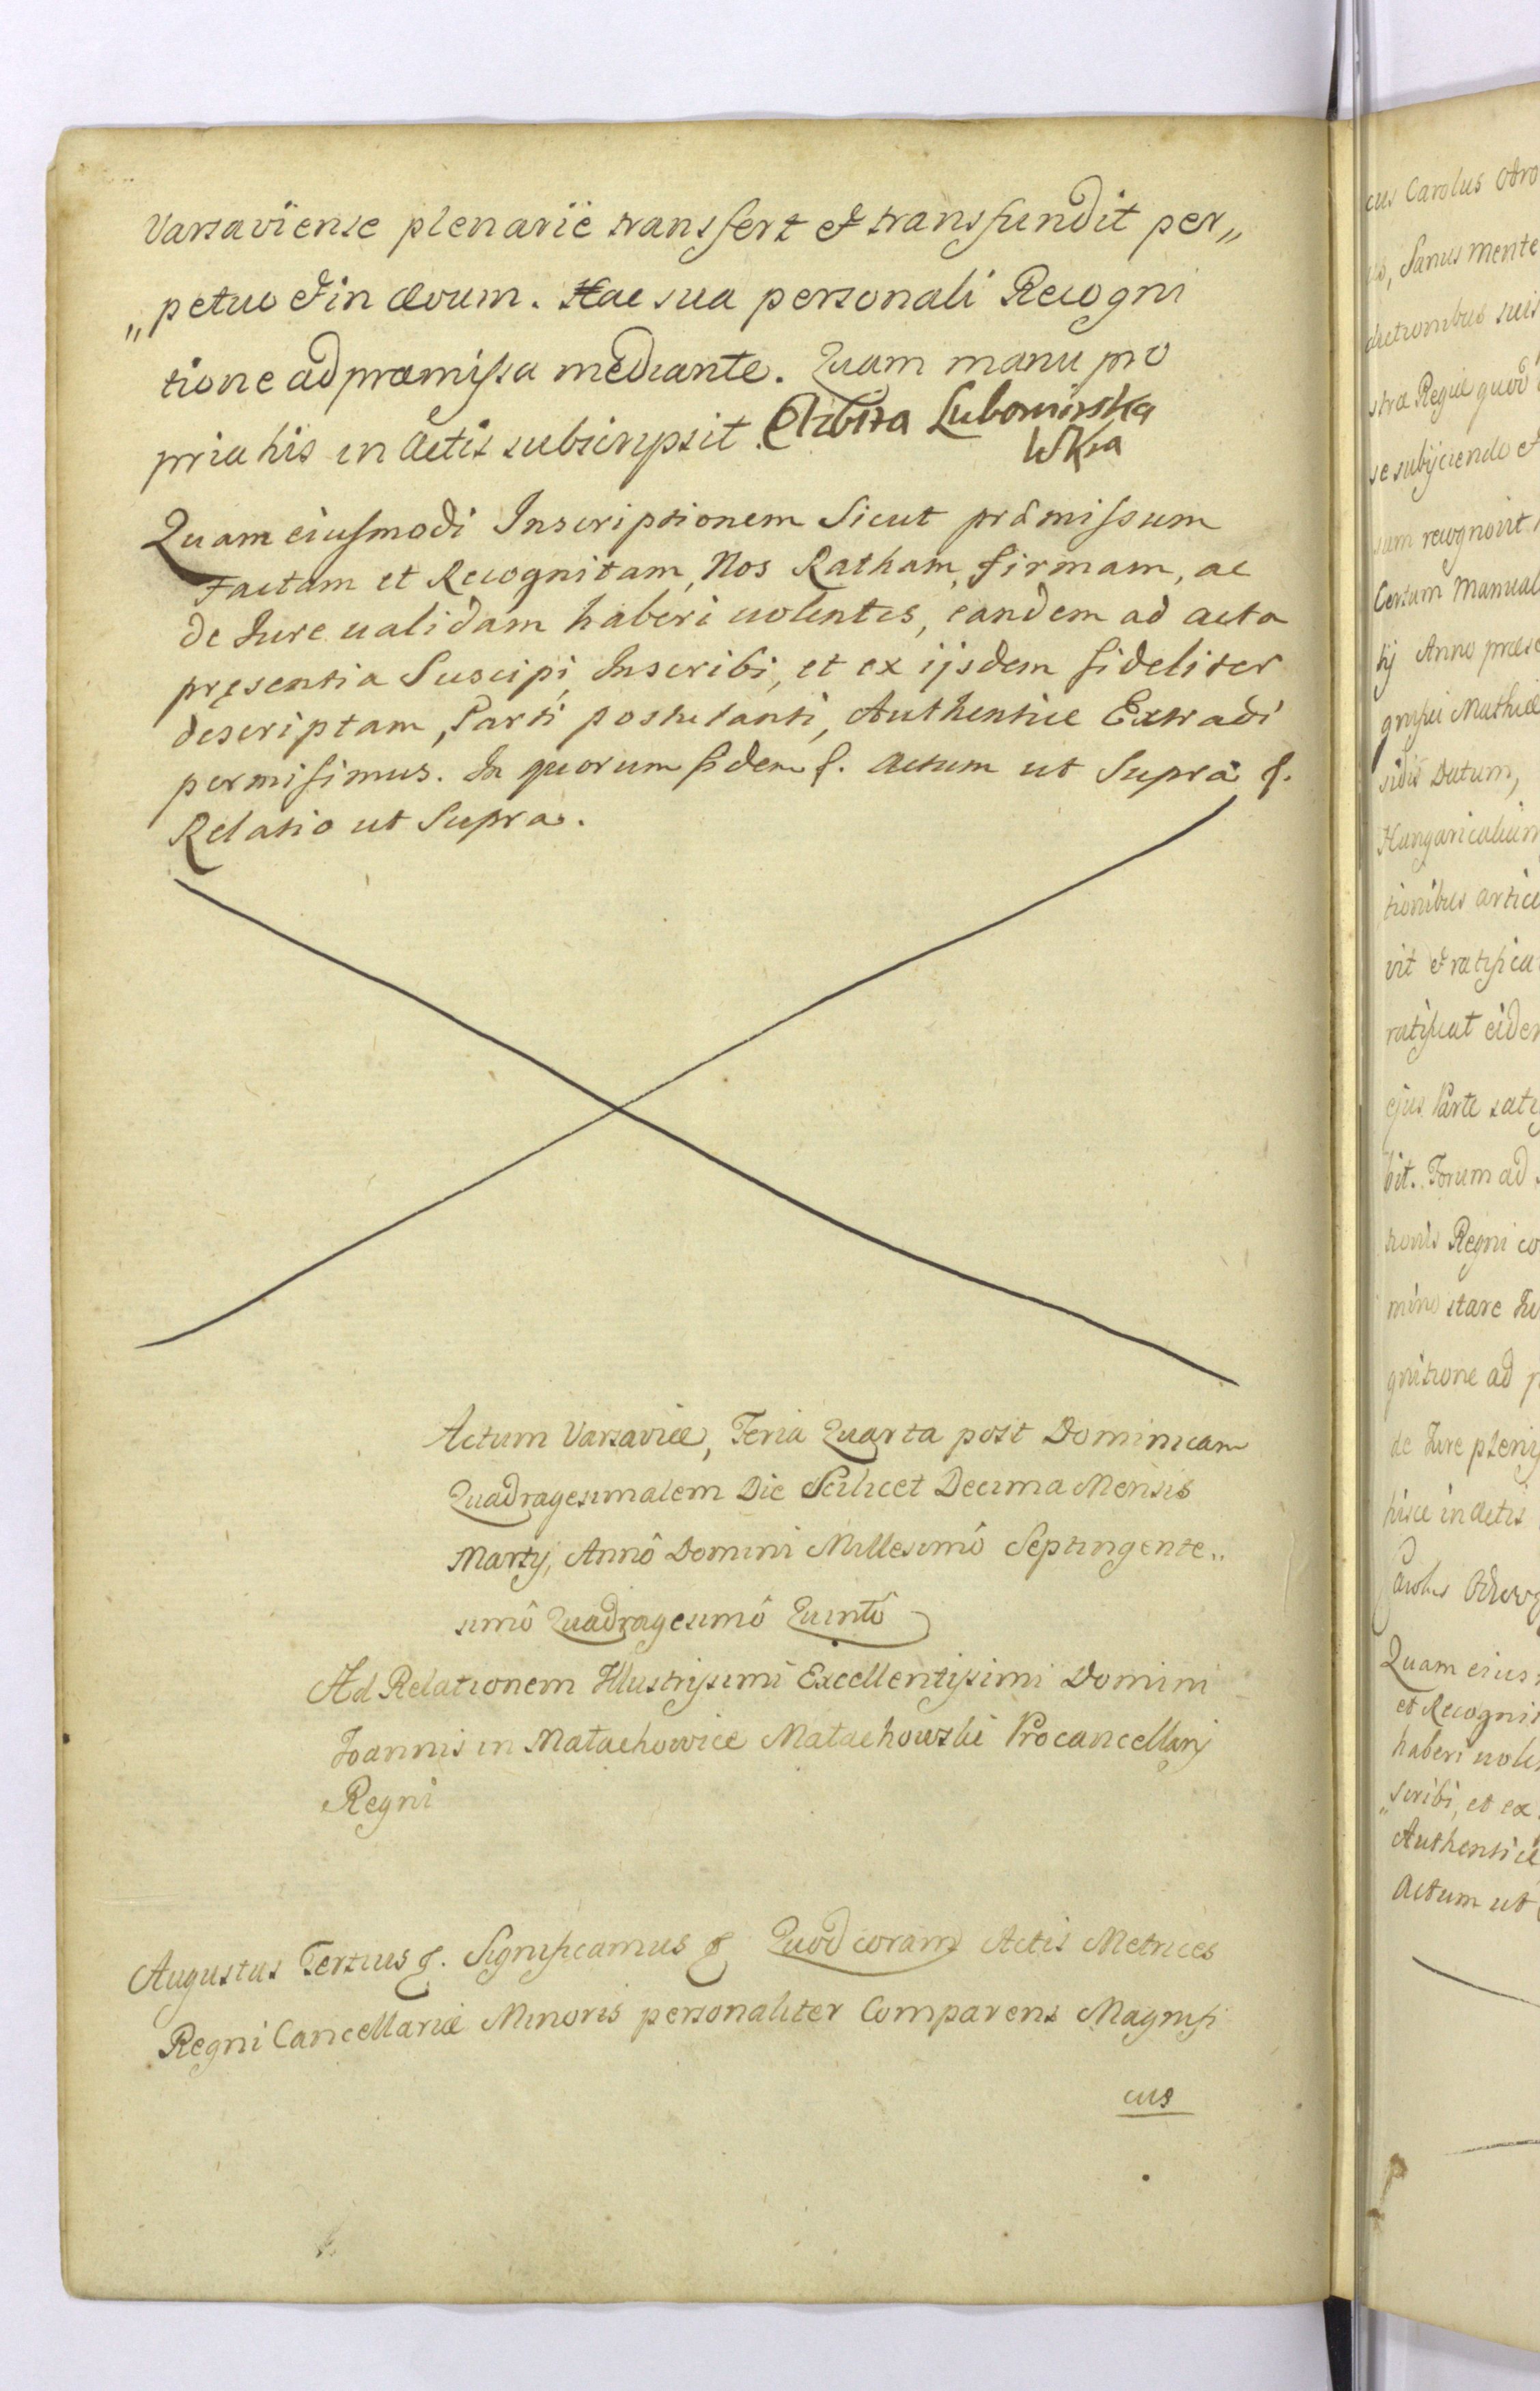 Varsaviense plenarie transfert et transfundit per„
„petuo et in ævum. Hac sua personali Recogni
tione ad præmissa mediante. Quam manu pro
pria his in Actis subscripsit. Elzbita Lubomirska
WKa
Quam eiusmodi Inscriptionem Sicut præmissum
Factam et Recognitam, Nos Ratham, firmam, ac
de Jure ualidam haberi uolentes, eandem ad acta
pręsentia Suscipi, Inscribi, et ex ijsdem fideliter
descriptam, Parti postulanti, Authentice Extradi
permisimus. In quorum fidem &. Actum ut Supra &.
Relatio ut Supra.
Actum Varsaviæ, Feria Quarta post Dominicam
Quadragesimalem Die Scilicet Decima Mensis
Martij, Annô Domini Millesimô Septingente„
simô Quadragesimô Quintô
Ad Relationem Illustrissimi Excellentissimi Domini
Joannis in Małachowice Małachowski Procancellarij
Regni
Augustus Tertius &. Significamus & Quod coram Actis Metrices
Regni Cancellariæ Minoris personaliter Comparens Magnifi
cus
cus Carolus Odro
Sanus mente
dictionibus suis
stræ Regiæ quod
se subijciendo et
sum recognovit
Certum Manual
tij Anno præse
gnifici Mathiæ
sidis Datum,
Hungaricalium
tionibus articu
vit et ratifica
ratificat eidem
ejus Parte satis
bit. Forum ad
Regni co
mino stare Ju
gnitione ad p
de Jure pleni
hisce in Actis
Carolus Odrow
Quam eius
et Recogni
haberi uole
„scribi, et ex
Authentice
Actum ut